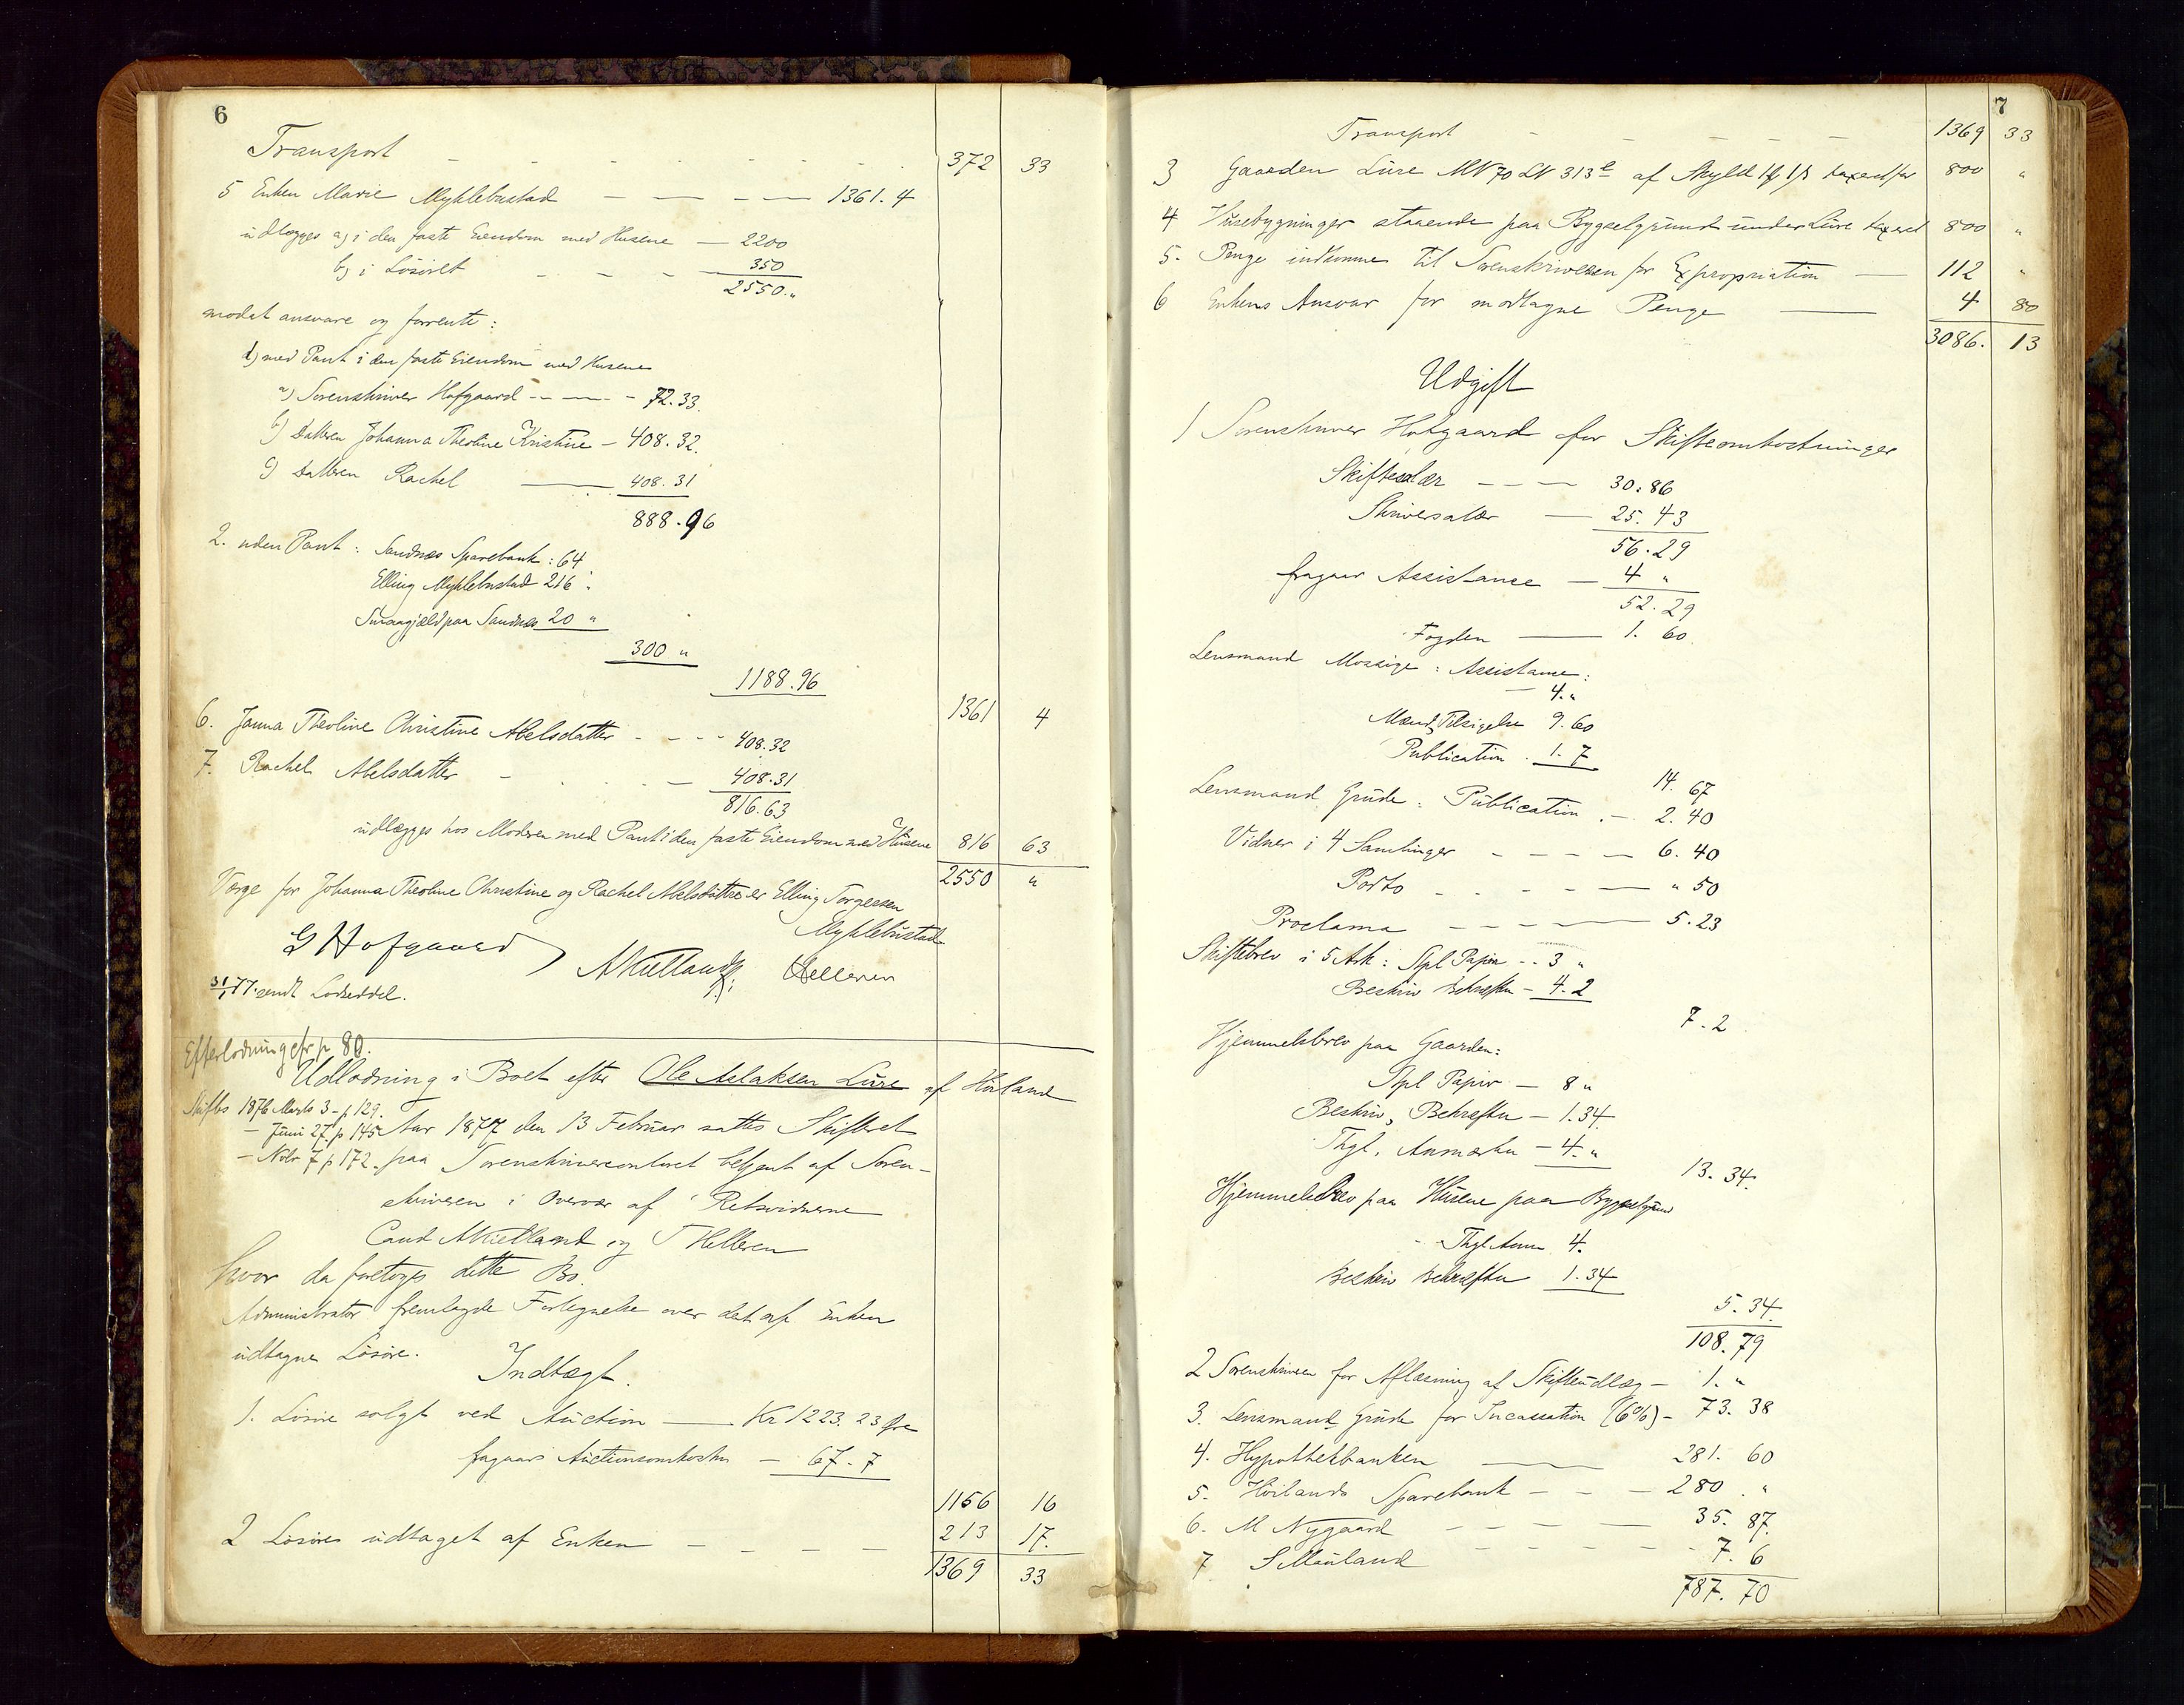 6
Transport - - - - - - - 372 33
5 Enken Marie Myklebustad - - - - 1361. 4
udlægges a) i den faste Eiendom med Husene — 2200
b) i Løsøret - - - 350
2550. "
modat ansvare og forrente:
1) med Pant i den faste Eiendom med Husene
a) Sorenskriver Hofgaard - - - 72. 33.
b) Datteren Johanna Theoline Kristine — 408. 32.
c) Datteren Rachel — 408. 31
888. 96
2. uden Pant: Sandnes Sparebank: 64
Elling Myklebustad 216 "
Smaagjæld paa Sandnes 20 "
300 "
1188. 96
1361 4
6. Janna Theoline Christine Abelsdatter - - - 408. 32
7. Rachel Abelsdatter - - - 408. 31
816. 63
udlægges hos Moderen med Pant i den faste Eiendom med Husene 816 63
2550 "
Værge for Johanna Theoline Christine og Rachel Abelsdøttre er Elling Torgersen
Myklebustad
G Hofgaard AKielland THelleren
31/1 77. sendt Lodseddel.
Efterlodning cfr p 80.
Udlodning i Boet efter Ole Aslaksen Lure af Høiland
Skiftes 1876 Marts 3 - p 129.
— Juni 27 p 145 Aar 1877 den 13 Februar sattes Skifteret
— Novbr 7 p 172. paa Sorenskrivercontoret betjent af Soren-
skriveren i Overvær af Retsvidnerne
Cand AKielland og T Helleren
hvor da foretoges dette Bo.
Administrator fremlagde Fortegnelse over det af Enken
udtagne Løsøre.
Indtægt.
1. Løsøre solgt ved Auction — Kr 1223. 23 Øre
fragaar Auctionsomkostn — 67. 7
1156 16
2 Løsøre udtaget af Enken - - - - 213 17.
1369 33
7
Transport - - - - - 1369 33
3 Gaarden Lure MN 70 LN 313 af Skyld taxeret for 800 "
4 Husebygninger staaende paa Bygselgrund under Lure taxeret 800 "
5. Penge indkomne til Sorenskriveren for Expropriation — 112 "
6 Enkens Ansvar for modtagne Penge — 4 80
3086. 13
Udgift
1 Sorenskriver Hofgaard for Skifteomkostninger
Skiftesalær - - - 30: 86
Skriversalær — 25. 43
56. 29
fragaar Assistance — 4 "
52. 29
Fogden — 1. 60.
Lensmand Mossige: Assistance:
— 4. "
Mænd, Tilsigelse 9. 60
Publication . 1. 7
14. 67
Lensmand Grude: Publication . — 2. 40
Vidner i 4 Samlinger - - - - 6. 40
Porto - - - - — " 50
Proclama - - - — 5. 23
Skiftebrev i 5 Ark: Stpl Papir - - 3 "
Beskriv Bekræftn — 4. 2
7. 2
Hjemmelsbrev paa Gaarden:
Stpl Papir — 8 "
Beskriv, Bekræftn — 1. 34.
Thgl, Anmærkn — 4. "
13. 34.
Hjemmelsbrev paa Husene paa Bygselgrund
Thgl Anm 4.
Beskriv Bekræftn 1. 34
5. 34.
108. 79
2 Sorenskriveren for Aflæsning af Skifteudlæg — 1. "
3. Lensmand Grude for Incassation (6%) — 73. 38
4. Hypothekbanken — 281. 60
5. Høilands Sparebank - - — 280. "
6. M Nygaard - - - — 35. 87.
7 S Mauland - - - - - 7. 6
787. 70